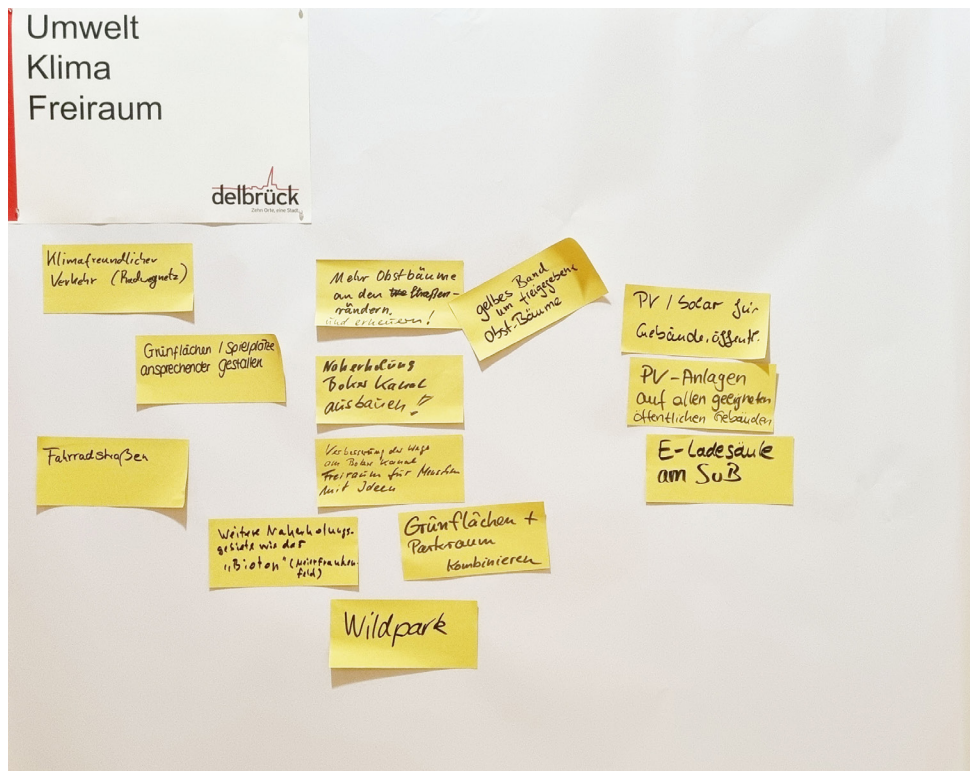 Umwelt
Klima
Freiraum
delbrück
Zehn Orte, eine Stadt.
Klimafreundlicher
Verkehr (Radwegnetz)
Grünflächen / Spielplätze
ansprechender gestalten
Fahrradstraßen
Mehr Obstbäume
an den Straßen-
rändern.
und erneuern!
gelbes Band
um freigegebene
Obst-Bäume
Naherholung
Boker Kanal
ausbauen!
Verbesserung der Wege
am Boker Kanal
Freiraum für Menschen
mit Ideen
Weitere Naherholungs-
gebiete wie das
"Bioton" (Meierfranken-
feld)
Grünflächen +
Parkraum
kombinieren
Wildpark
PV / Solar für
Gebäude, öffentl.
PV-Anlagen
auf allen geeigneten
öffentlichen Gebäuden
E-Ladesäule
am SuB